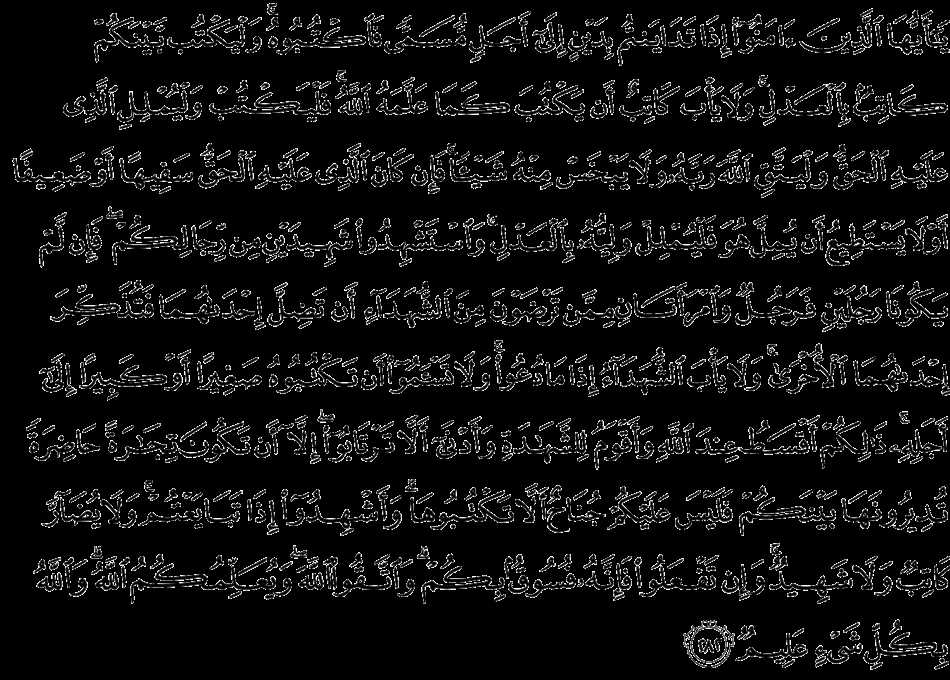 يَٰٓأَيُّهَا ٱلَّذِينَ ءَامَنُوٓا۟ إِذَا تَدَايَنتُم بِدَيْنٍ إِلَىٰٓ أَجَلٍ مُّسَمًّى فَٱكْتُبُوهُ ۚ وَلْيَكْتُب بَّيْنَكُمْ
كَاتِبٌۢ بِٱلْعَدْلِ ۚ وَلَا يَأْبَ كَاتِبٌ أَن يَكْتُبَ كَمَا عَلَّمَهُ ٱللَّهُ ۚ فَلْيَكْتُبْ وَلْيُمْلِلِ ٱلَّذِى
عَلَيْهِ ٱلْحَقُّ وَلْيَتَّقِ ٱللَّهَ رَبَّهُۥ وَلَا يَبْخَسْ مِنْهُ شَيْـًٔا ۚ فَإِن كَانَ ٱلَّذِى عَلَيْهِ ٱلْحَقُّ سَفِيهًا أَوْ ضَعِيفًا
أَوْ لَا يَسْتَطِيعُ أَن يُمِلَّ هُوَ فَلْيُمْلِلْ وَلِيُّهُۥ بِٱلْعَدْلِ ۚ وَٱسْتَشْهِدُوا۟ شَهِيدَيْنِ مِن رِّجَالِكُمْ ۖ فَإِن لَّمْ
يَكُونَا رَجُلَيْنِ فَرَجُلٌ وَٱمْرَأَتَانِ مِمَّن تَرْضَوْنَ مِنَ ٱلشُّهَدَآءِ أَن تَضِلَّ إِحْدَىٰهُمَا فَتُذَكِّرَ
إِحْدَىٰهُمَا ٱلْأُخْرَىٰ ۚ وَلَا يَأْبَ ٱلشُّهَدَآءُ إِذَا مَا دُعُوا۟ ۚ وَلَا تَسْـَٔمُوٓا۟ أَن تَكْتُبُوهُ صَغِيرًا أَوْ كَبِيرًا إِلَىٰٓ
أَجَلِهِۦ ۚ ذَٰلِكُمْ أَقْسَطُ عِندَ ٱللَّهِ وَأَقْوَمُ لِلشَّهَٰدَةِ وَأَدْنَىٰٓ أَلَّا تَرْتَابُوٓا۟ ۖ إِلَّآ أَن تَكُونَ تِجَٰرَةً حَاضِرَةً
تُدِيرُونَهَا بَيْنَكُمْ فَلَيْسَ عَلَيْكُمْ جُنَاحٌ أَلَّا تَكْتُبُوهَا ۗ وَأَشْهِدُوٓا۟ إِذَا تَبَايَعْتُمْ ۚ وَلَا يُضَآرَّ
كَاتِبٌ وَلَا شَهِيدٌ ۚ وَإِن تَفْعَلُوا۟ فَإِنَّهُۥ فُسُوقٌۢ بِكُمْ ۗ وَٱتَّقُوا۟ ٱللَّهَ ۖ وَيُعَلِّمُكُمُ ٱللَّهُ ۗ وَٱللَّهُ
بِكُلِّ شَىْءٍ عَلِيمٌ ٢٨٢